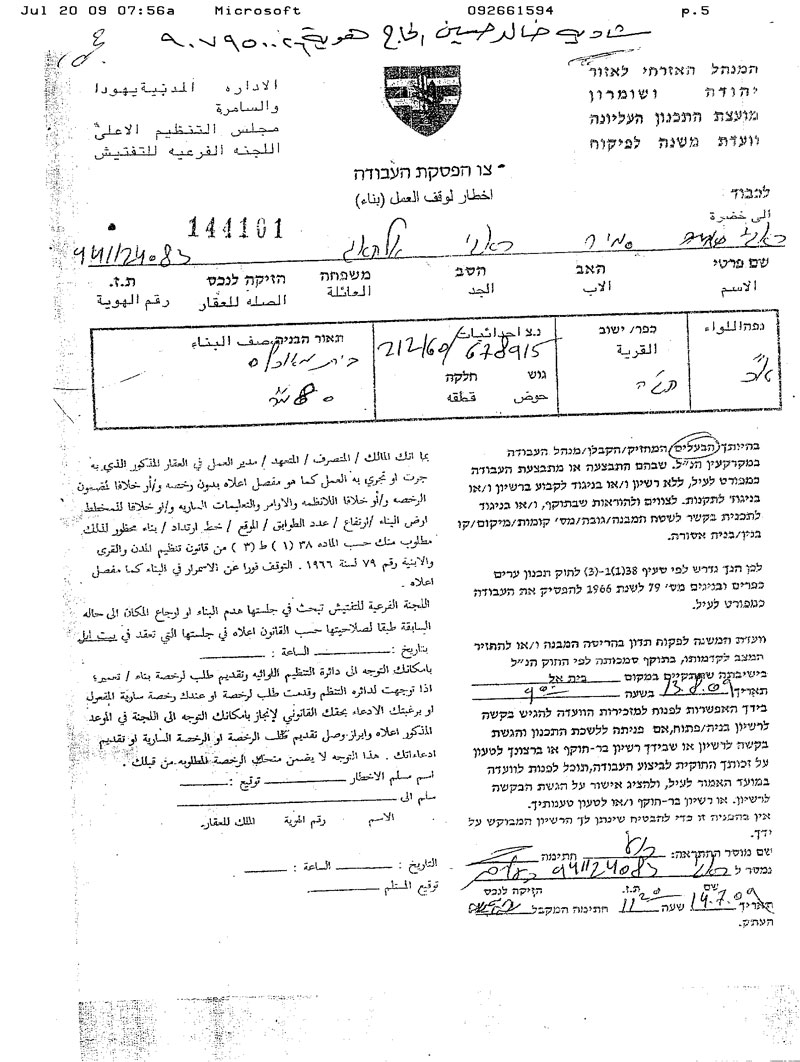 Jul 20 09 07:56a Microsoft 092661594 p.5
شادي خالد حسين الحاج هوية ٩٠٧٩٥٠٠٢٦
המנהל האזרחי לאזור
יהודה ושומרון
מועצת התכנון העליונה
וועדת משנה לפיקוח
الاداره المدنية يهودا
والسامرة
مجلس التنظيم الاعلى
اللجنه الفرعيه للتفتيش
צו הפסקת העבודה
اخطار لوقف العمل (بناء)
לכבוד
الى حضرة
144101
941124083
שם פרטי האב הסב משפחה הזיקה לנכס ת.ז.
الاسم الاب الجد العائلة الصله للعقار رقم الهوية
נפה اللواء
כפר/ ישוב
القرية
נ.צ احداثيات
212160/678915
גוש חלקה
حوض قطعه
תאור הבניה وصف البناء
בהיותך הבעלים/המחזיק/הקבלן/מנהל העבודה
במקרקעין הנ"ל. שבהם התבצעה או מתבצעת העבודה
כמפורט לעיל, ללא רשיון ו/או בניגוד לקבוע ברשיון ו/או
בניגוד לתקנות. לצווים ולהוראות שבתוקף, ו/או בניגוד
לתכנית בקשר לשטח המבנה/גובה/מס' קומות/מיקום/קו
בנין/בניה אסורה.
לכן הנך נדרש לפי סעיף 38(1)-(3) לחוק תכנון ערים
כפרים ובנינים מס' 79 לשנת 1966 להפסיק את העבודה
כמפורט לעיל.
וועדת המשנה לפקוח תדון בהריסת המבנה ו/או להחזיר
המצב לקדמותו, בתוקף סמכותה לפי החוק הנ"ל
בישיבתה שתתקיים במקום בית אל
תאריך 13.8.09 בשעה 9:00
בידך האפשרות לפנות למזכירות הוועדה להגיש בקשה
לרשיון בניה/פתוח,אם פניתה ללשכת התכנון והגשת
בקשה לרשיון או שבידך רשיון בר-תוקף או ברצונך לטעון
על זכותך החוקית לביצוע העבודה,תוכל לפנות לוועדה
במועד האמור לעיל, ולהציג אישור על הגשת הבקשה
לרשיון. או רשיון בר-תוקף ו/או לטעון טענותיך.
אין בהפניה זו כדי להבטיח שינתן לך הרשיון המבוקש על
ידך.
שם מוסר ההתראה: חתימה
נמסר ל 941124083
שם ת.ז. הזיקה לנכס
תאריך 14.7.09 שעה 11:20 חתימה המקבל
העתק.
بما انك المالك / المتصرف / المتعهد / مدير العمل في العقار المذكور الذي به
جرت او تجري به العمل كما هو مفصل اعلاه بدون رخصه و/أو خلافا لمضمون
الرخصه و/أو خلافا للانظمه والاوامر والتعليمات الساريه و/او خلافا للمخطط
ارض البناء /ارتفاع / عدد الطوابق / الموقع / خط ارتداد / بناء محظور لذلك
مطلوب منك حسب الماده ٣٨ (١) ط (٣) من قانون تنظيم المدن والقرى
والابنية رقم ٧٩ لسنة ١٩٦٦ . التوقف فورا عن الاستمرار في البناء كما مفصل
اعلاه .
اللجنة الفرعية للتفتيش تبحث في جلستها هدم البناء او لوجاع المكان الى حاله
السابقة طبقا لصلاحيتها حسب القانون اعلاه في جلستها التي تعقد في بيت ايل
بتاريخ: الساعة :
بامكانك التوجه الى دائرة التنظيم اللوائيه وتقديم طلب لرخصة بناء / تعمير؛
اذا توجهت لدائره التنظم وقدمت طلب لرخصة او عندك رخصة سارية المفعول
او برغبتك الادعاء بحقك القانوني لإنجاز بامكانك التوجه الى اللجنة في الموعد
المذكور اعلاه وابراز وصل تقديم طلب الرخصة او الرخصة السارية او تقديم
ادعاءاتك . هذا التوجه لا يضمن منحك الرخصة المطلوبه من قبلك .
اسم مسلم الاخطار توقيع :
سلم الى
الاسم رقم الهوية الملك للعقار.
التاريخ : الساعة :
توقيع المستلم